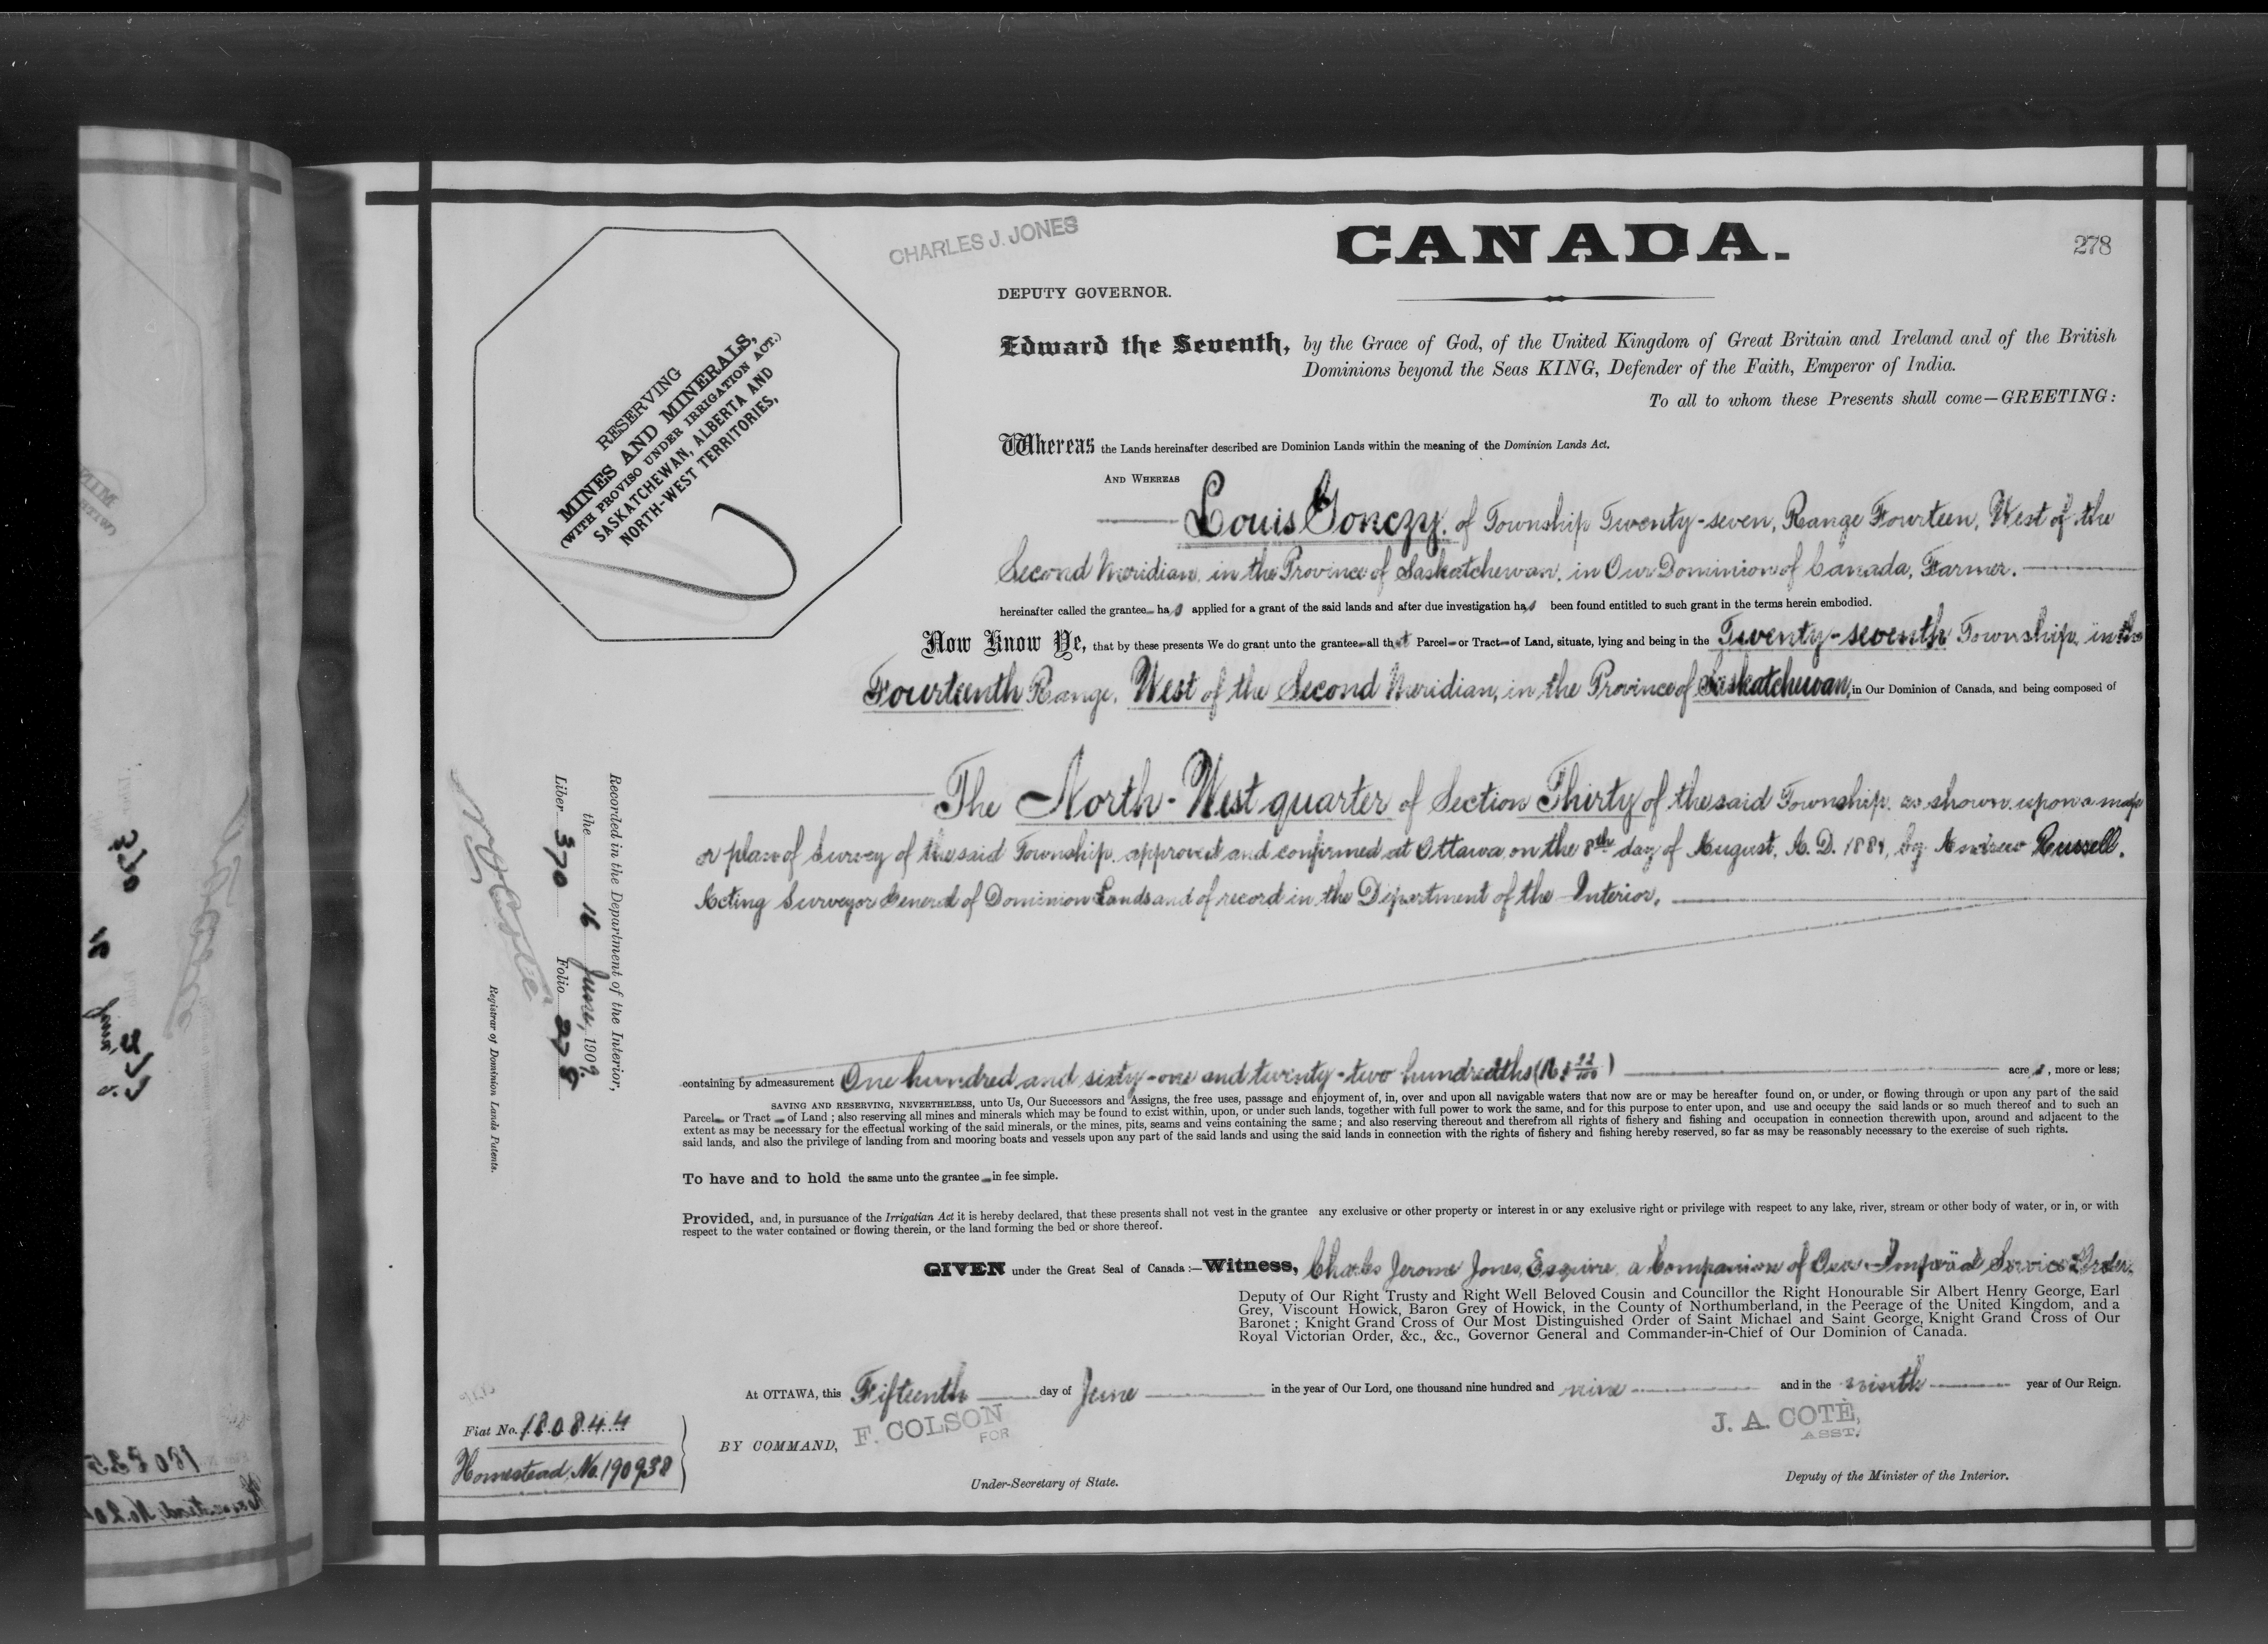 CHARLES J. JONES
CANADA.
278
DEPUTY GOVERNOR.
Edward the Seventh, by the Grace of God, of the United Kingdom of Great Britain and Ireland and of the British
Dominions beyond the Seas KING, Defender of the Faith, Emperor of India.
To all to whom these Presents shall come—GREETING:
RESERVING
MINES AND MINERALS,
(WITH PROVISO UNDER IRRIGATION ACT.)
SASKATCHEWAN, ALBERTA AND
NORTH-WEST TERRITORIES,
Whereas the Lands hereinafter described are Dominion Lands within the meaning of the Dominion Lands Act.
AND WHEREAS
Louis Gonczy, of Township Twenty-seven, Range Fourteen, West of the
Second Meridian, in the Province of Saskatchewan, in Our Dominion of Canada, Farmer.
hereinafter called the grantee has applied for a grant of the said lands and after due investigation has been found entitled to such grant in the terms herein embodied.
Now Know Ye, that by these presents We do grant unto the grantee all that Parcel or Tract of Land, situate, lying and being in the Twenty-seventh Township, in the
Fourteenth Range, West of the Second Meridian, in the Province of Saskatchewan, in Our Dominion of Canada, and being composed of
The North-West quarter of Section Thirty of the said Township, as shown upon a map
or plan of Survey of the said Township, approved and confirmed at Ottawa, on the 8th day of August, A. D. 1884, by Andrew Russell,
Acting Surveyor General of Dominion Lands and of record in the Department of the Interior,
containing by admeasurement One hundred and sixty-one and twenty-two hundredths (161 22/100) acres, more or less;
SAVING AND RESERVING, NEVERTHELESS, unto Us, Our Successors and Assigns, the free uses, passage and enjoyment of, in, over and upon all navigable waters that now are or may be hereafter found on, or under, or flowing through or upon any part of the said
Parcel or Tract of Land; also reserving all mines and minerals which may be found to exist within, upon, or under such lands, together with full power to work the same, and for this purpose to enter upon, and use and occupy the said lands or so much thereof and to such an
extent as may be necessary for the effectual working of the said minerals, or the mines, pits, seams and veins containing the same; and also reserving thereout and therefrom all rights of fishery and fishing and occupation in connection therewith upon, around and adjacent to the
said lands, and also the privilege of landing from and mooring boats and vessels upon any part of the said lands and using the said lands in connection with the rights of fishery and fishing hereby reserved, so far as may be reasonably necessary to the exercise of such rights.
To have and to hold the same unto the grantee in fee simple.
Provided, and, in pursuance of the Irrigatian Act it is hereby declared, that these presents shall not vest in the grantee any exclusive or other property or interest in or any exclusive right or privilege with respect to any lake, river, stream or other body of water, or in, or with
respect to the water contained or flowing therein, or the land forming the bed or shore thereof.
GIVEN under the Great Seal of Canada:—Witness, Charles Jerome Jones, Esquire, a Companion of Our Imperial Service Order,
Deputy of Our Right Trusty and Right Well Beloved Cousin and Councillor the Right Honourable Sir Albert Henry George, Earl
Grey, Viscount Howick, Baron Grey of Howick, in the County of Northumberland, in the Peerage of the United Kingdom, and a
Baronet; Knight Grand Cross of Our Most Distinguished Order of Saint Michael and Saint George, Knight Grand Cross of Our
Royal Victorian Order, &c., &c., Governor General and Commander-in-Chief of Our Dominion of Canada.
At OTTAWA, this Fifteenth day of June in the year of Our Lord, one thousand nine hundred and nine and in the ninth year of Our Reign.
F. COLSON
FOR
J. A. COTÉ,
ASST.
BY COMMAND,
Under-Secretary of State.
Deputy of the Minister of the Interior.
Fiat No. 180844
Homestead, No. 190938
Recorded in the Department of the Interior,
the 16 June, 1909.
Liber 370 Folio 278
Registrar of Dominion Lands Patents.